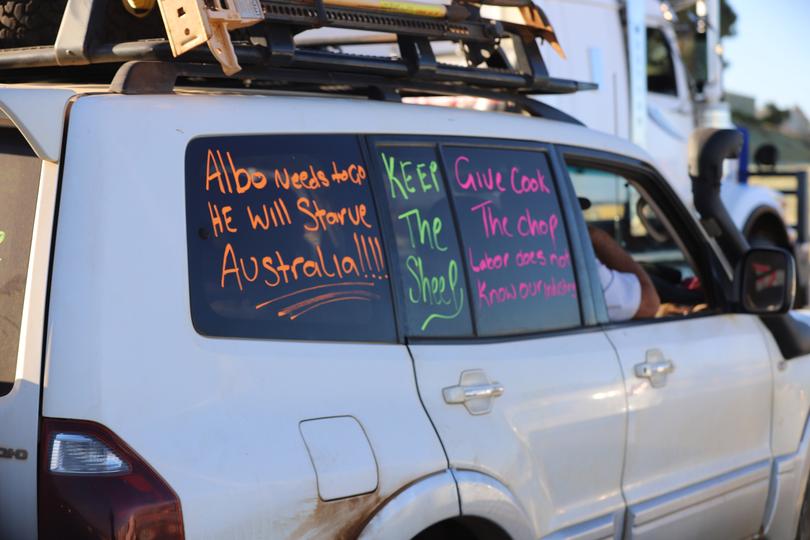 Albo needs to go
HE will Starve
Australia!!!!
KEEP
The
Sheep
Give Cook
The chop
Labor does not
Know our Industry